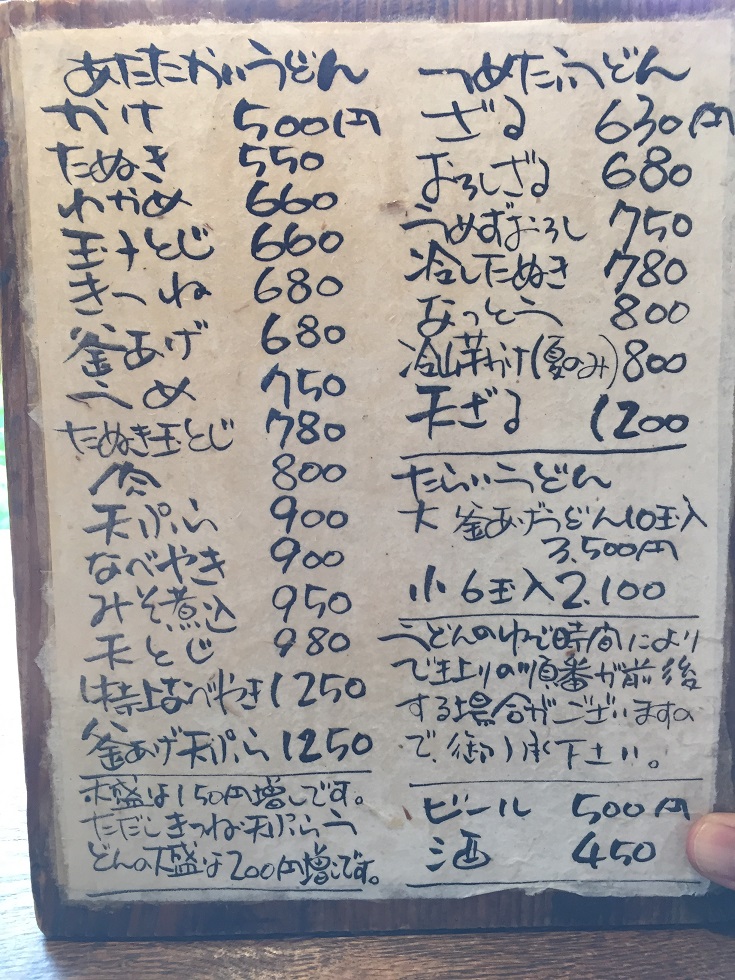 あたたかいうどん
かけ 500円
たぬき 550
わかめ 660
玉子とじ 660
きつね 680
釜あげ 680
うめ 750
たぬき玉とじ 780
肉 800
天ぷら 900
なべやき 900
みそ煮込 950
天とじ 980
特上なべやき 1250
釜あげ天ぷら 1250
大盛は150円増しです。
ただしきつね天ぷらう
どんの大盛は200円増しです。
つめたいうどん
ざる 630円
おろしざる 680
うめずおろし 750
冷したぬき 780
なっとう 800
冷山芋かけ(夏のみ) 800
天ざる 1200
たらいうどん
大 釜あげうどん10玉入
3,500円
小 6玉入 2.100
うどんのゆで時間により
で上りの順番が前後
する場合がございますの
で、御了承下さい。
ビール 500円
酒 450